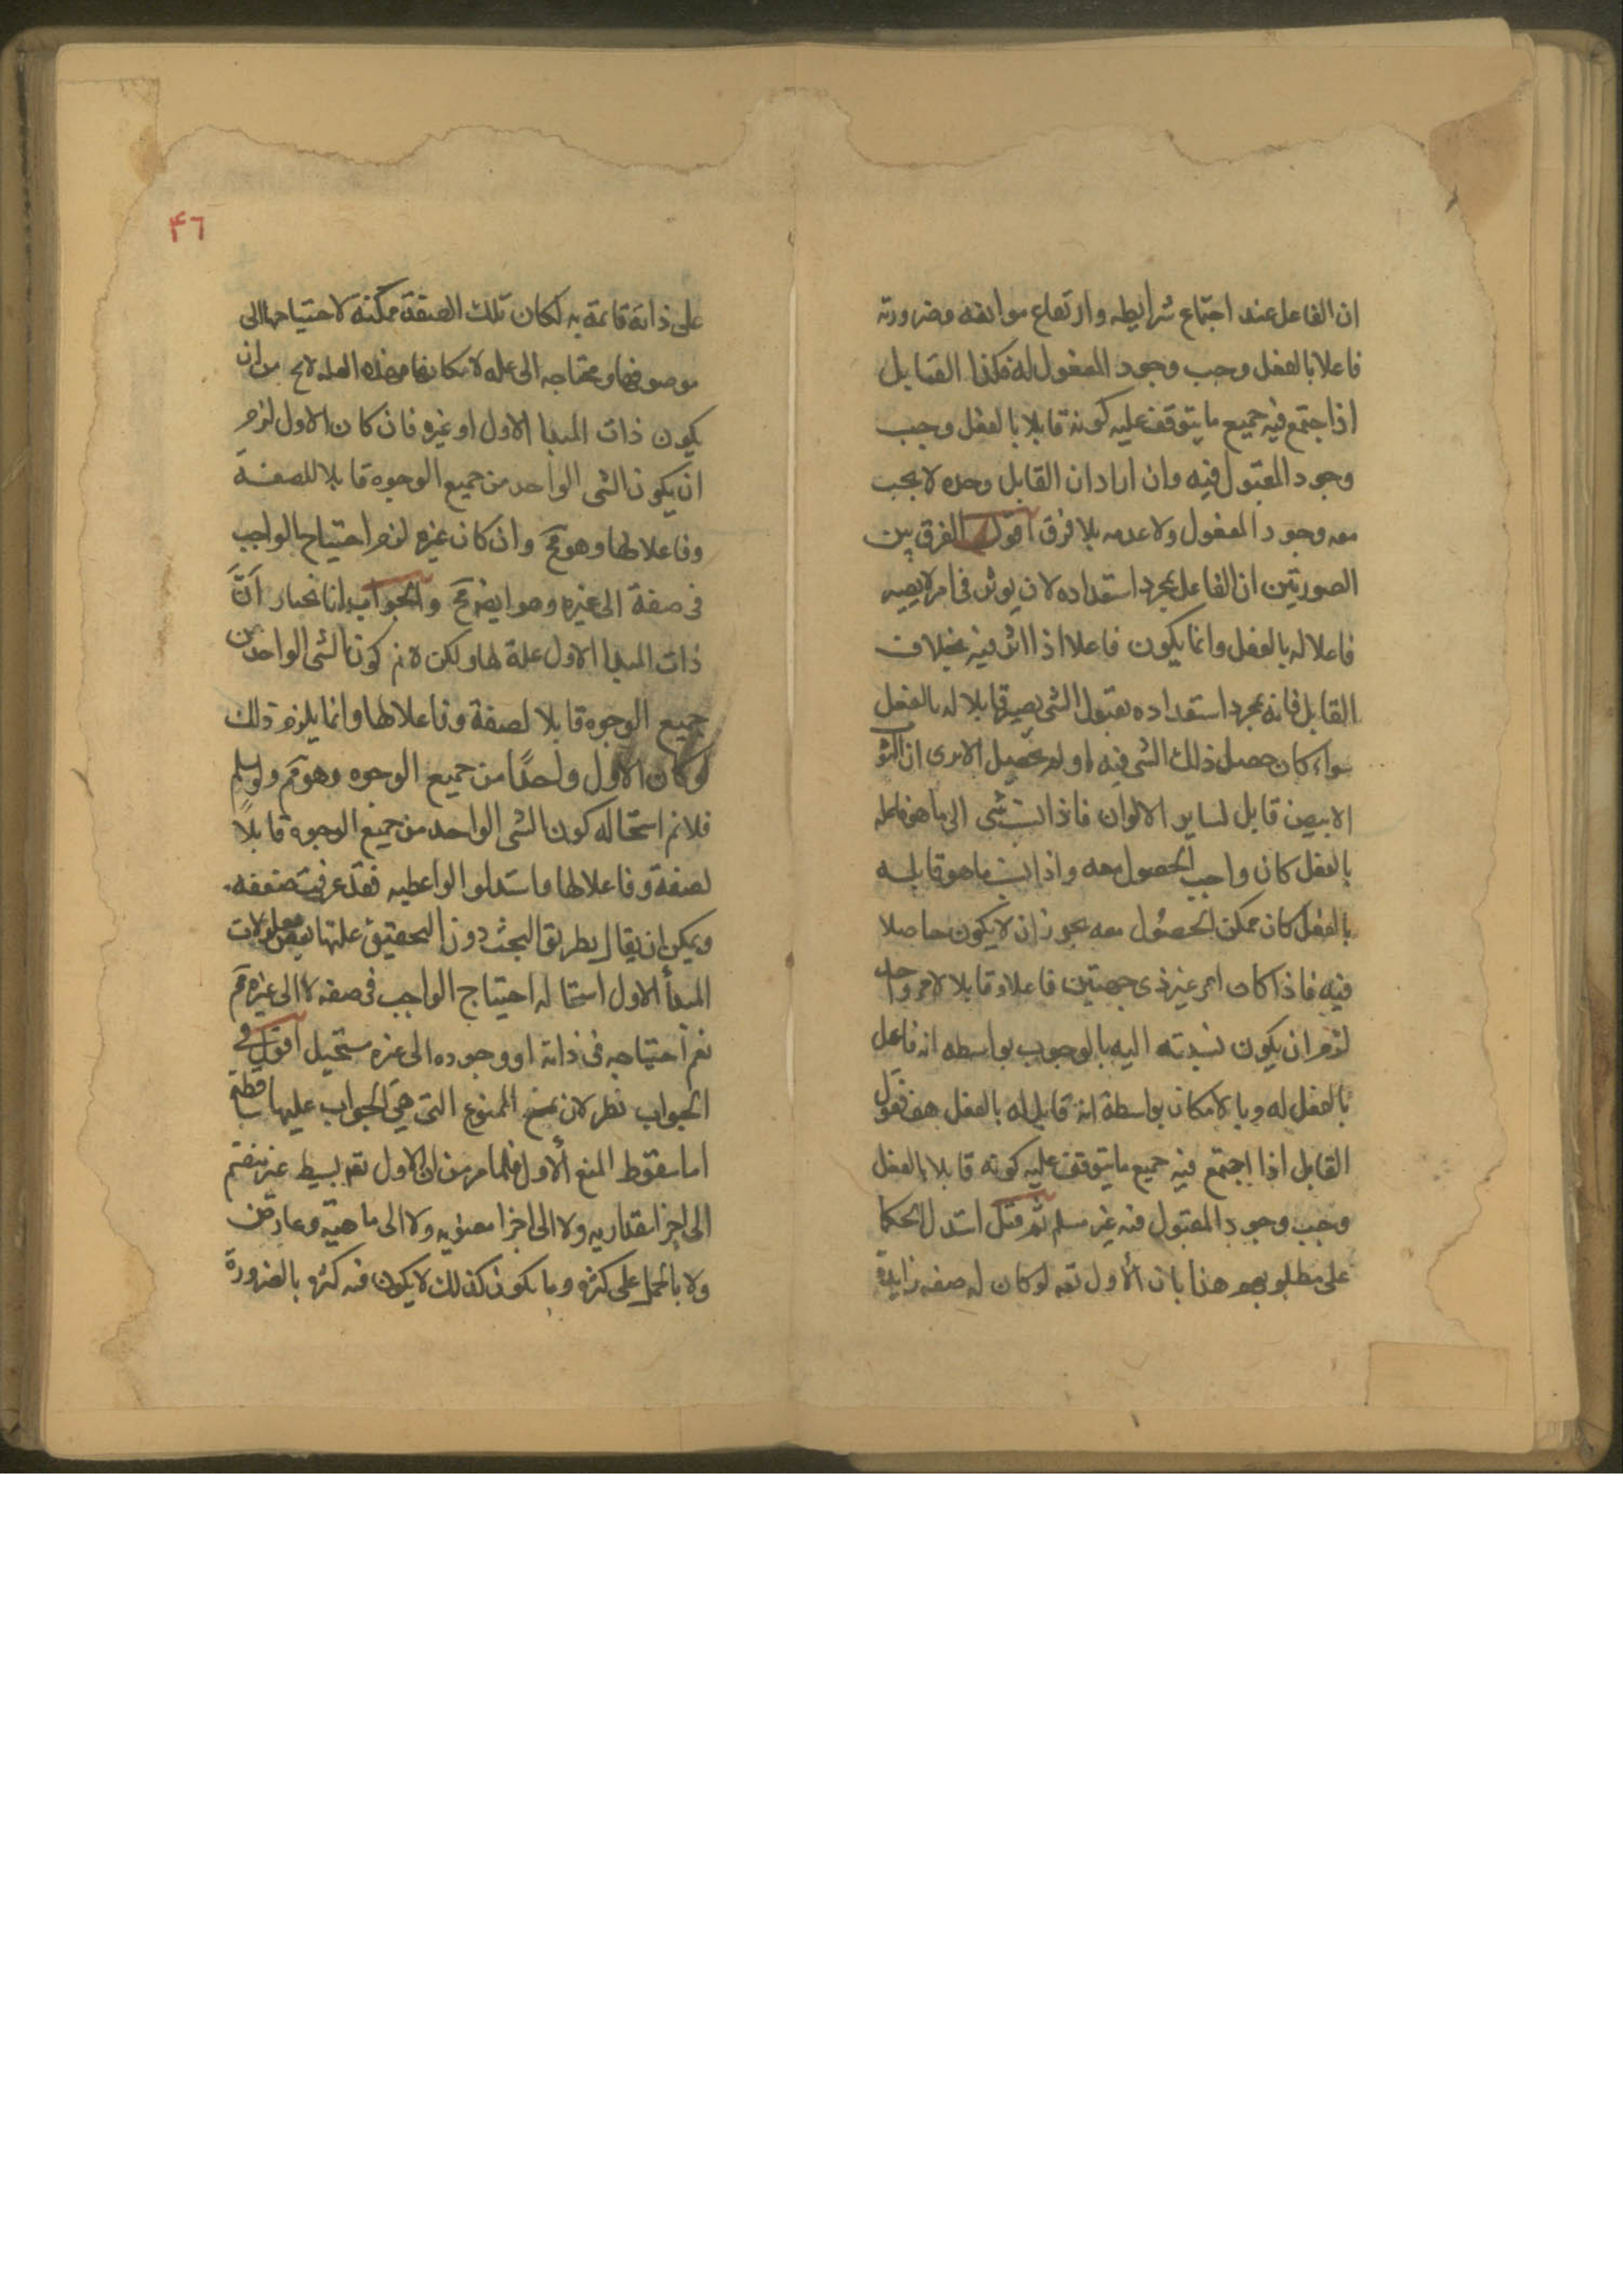 ان الفاعل عند اجتماع شرايطه وارتفاع موانعه وضرورته
فاعلا بالفعل وجب وجود المفعول له فكذا القابل
اذا جتمع فيه جميع ما يتوقف عليه كونه قابلا بالفعل وجب
وجود المقبول فيه وان اراد ان القابل وحده لا يجب
معه وجود المفعول ولا عدمه بلا فرق اقول الفرق بين
الصورتين ان الفاعل بمجرد استعداده لان يوثر في امر لا يصير
فاعلا له بالفعل وانما يكون فاعلا اذا اثر فيه بخلاف
القابل فانه بمجرد استعداده بقبول الشي يصير قابلا له بالفعل
سواء كان حصل ذلك الشي فيه او لم يحصل الا يرى ان الثوب
الابيض قابل لساير الالوان فاذا نسب شي الى ما هو فاعله
بالفعل كان واجب الحصول معه واذا نسب ما هو قابله
بالفعل كان ممكن الحصول معه يجوز ان لا يكون حاصلا
فيه فاذا كان امر غير ذى جهتين فاعلا وقابلا لامر واحد
لزم ان يكون نسبته اليه بالوجوب بواسطه انه فاعل
بالفعل له وبالامكان بواسطة انه قابل له بالفعل هف فقول
القابل اذا اجتمع فيه جميع ما يتوقف عليه كونه قابلا بالفعل
وجب وجود المقبول فيه غير مسلم ثم قيل استدل الحكما
على مطلوبهم هذا بان الأول تعه لوكان له صفه زايدة
٤٦
على ذاته قائمة به لكان تلك الصفة ممكنة لاحتياجها الى
موصوفها ومحتاجه الى عله لامكانها فهذه العله لايخ من ان
يكون ذات المبدا الاول او غيره فان كان الاول لزم
ان يكون الشي الواحد من جميع الوجوه قابلا للصفة
وفاعلا لها وهو مح وان كان غيره لزم احتياج الواجب
في صفة الى غيره وهو ايضا مح والجواب انا نختار أنَّ
ذات المبدا الاول علة لها ولكن لانم كون الشي الواحد من
جميع الوجوه قابلا لصفة وفاعلا لها وانما يلزم ذلك
لوكان الاول واحدًا من جميع الوجوه وهو مم ولو سلم
فلانم استحاله كون الشي الواحد من جميع الوجوه قابلاً
لصفة وفاعلا لها وما استدلوا عليه فقد عرفت ضعفه
ويمكن ان يقال بطريق البحث دون التحقيق علتها بعض معلولات
المبدأ الاول استحاله احتياج الواجب في صفه لا الى غيره مم
نعم احتياجه في ذاته او وجوده الى غيره مستحيل اقول في
الجواب نظر لان المنوع التي هي الجواب عليها ساقطه
اما سقوط المنع الأول فلما مر من ان الاول تعه بسيط غير منقسم
الى اجزا مقداريه ولا الى اجزا معنويه ولا الى ماهية وعارض
ولا بالحمل على كثره وما يكون كذلك لا يكون فيه كثره بالضرورة